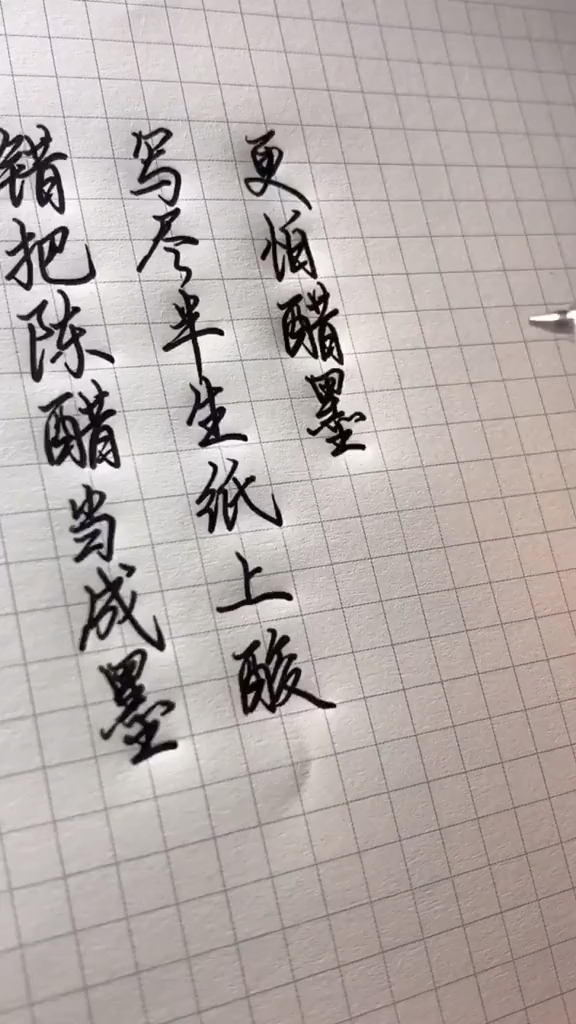 错把陈醋当成墨
写尽半生纸上酸
更怕醋墨